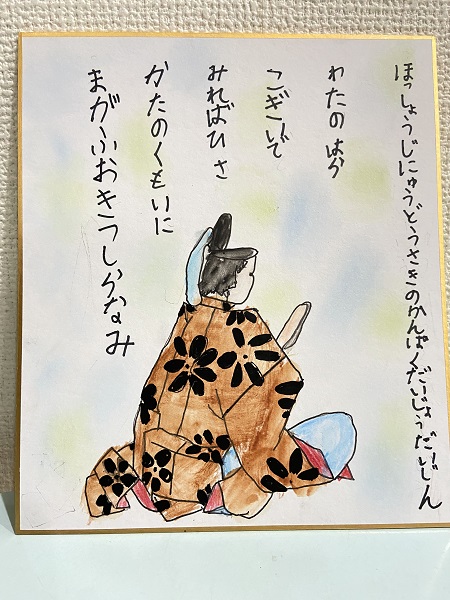 ほっしょうじにゅうどうさきのかんぱくだいじょうだいじん
わたのはら
こぎいで
みればひさ
かたのくもいに
まがふおきつしらなみ